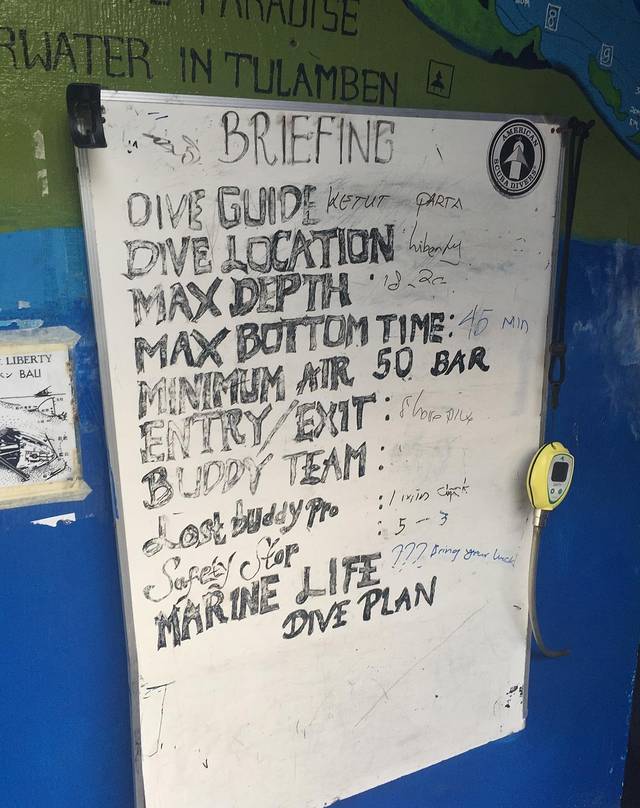 PARADISE
RWATER IN TULAMBEN
BRIEFING
AMERICAN
SCUBA DIVERS
8
9
DIVE GUIDE KETUT PARTA
DIVE LOCATION Liberty
MAX DEPTH : 18-20
MAX BOTTOM TIME: 45 MIN
MINIMUM AIR 50 BAR
ENTRY/EXIT : Shore
BUDDY TEAM :
Lost buddy Pro : 1 min
Safety Stop : 5 - 3
MARINE LIFE ??? Bring your luck!
DIVE PLAN
LIBERTY
BALI